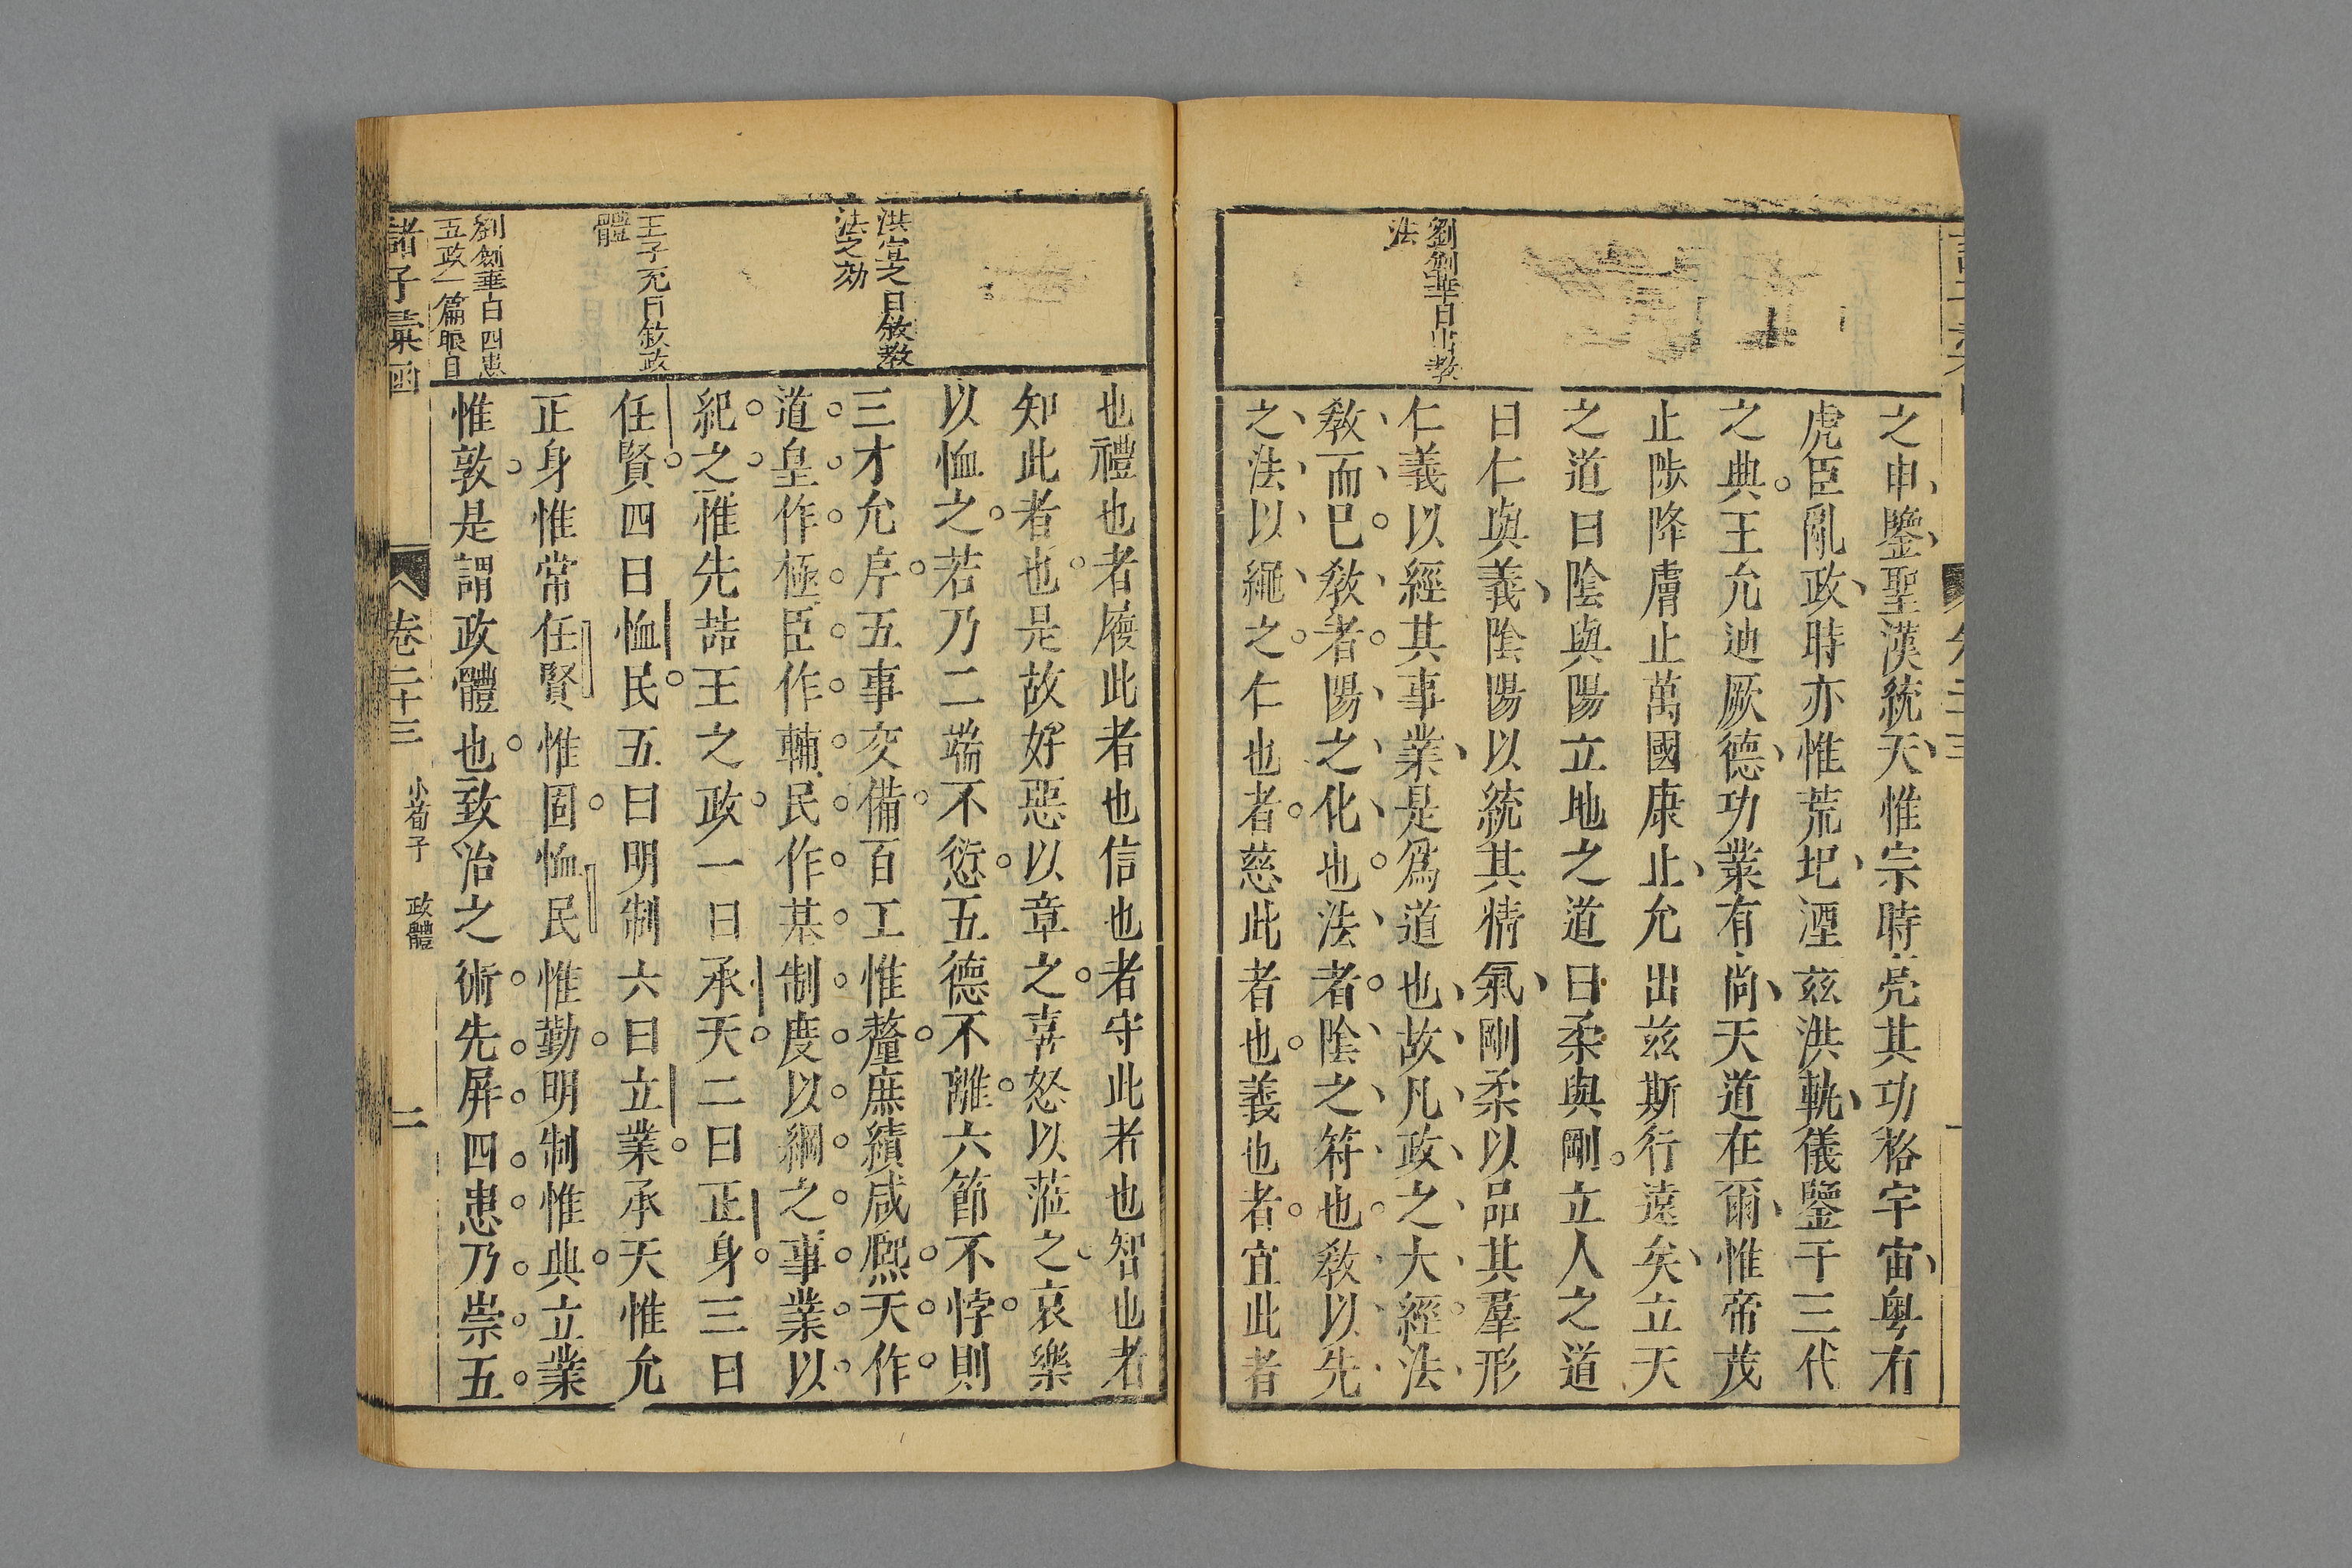 劉劍華曰出教
法
之申鑒聖漢統天惟宗時亮其功格宇宙粤有
虎臣亂政時亦惟荒圯湮茲洪軌儀鑒于三代
之典王允迪厥德功業有尚天道在爾惟帝茂
止陟降膚止萬國康止允出茲斯行遠矣立天
之道曰陰與陽立地之道曰柔與剛立人之道
曰仁與義陰陽以統其情氣剛柔以品其羣形
仁義以經其事業是爲道也故凡政之大經法
教而巳教者陽之化也法者陰之符也教以先
之法以繩之仁也者慈此者也義也者宜此者
洪宣之曰敘教
法之効
王子充曰敘政
體
劉劍華曰四患
五政一篇眼目
也禮也者履此者也信也者守此者也智也者
知此者也是故好惡以章之喜怒以蒞之哀樂
以恤之若乃二端不愆五德不離六節不悖則
三才允序五事交備百工惟釐庶績咸熙天作
道皇作極臣作輔民作基制度以綱之事業以
紀之惟先喆王之政一曰承天二曰正身三曰
任賢四曰恤民五曰明制六曰立業承天惟允
正身惟常任賢惟固恤民惟勤明制惟典立業
惟敦是謂政體也致治之術先屏四患乃崇五
諸子彙函
卷二十三
小荀子 政體
二